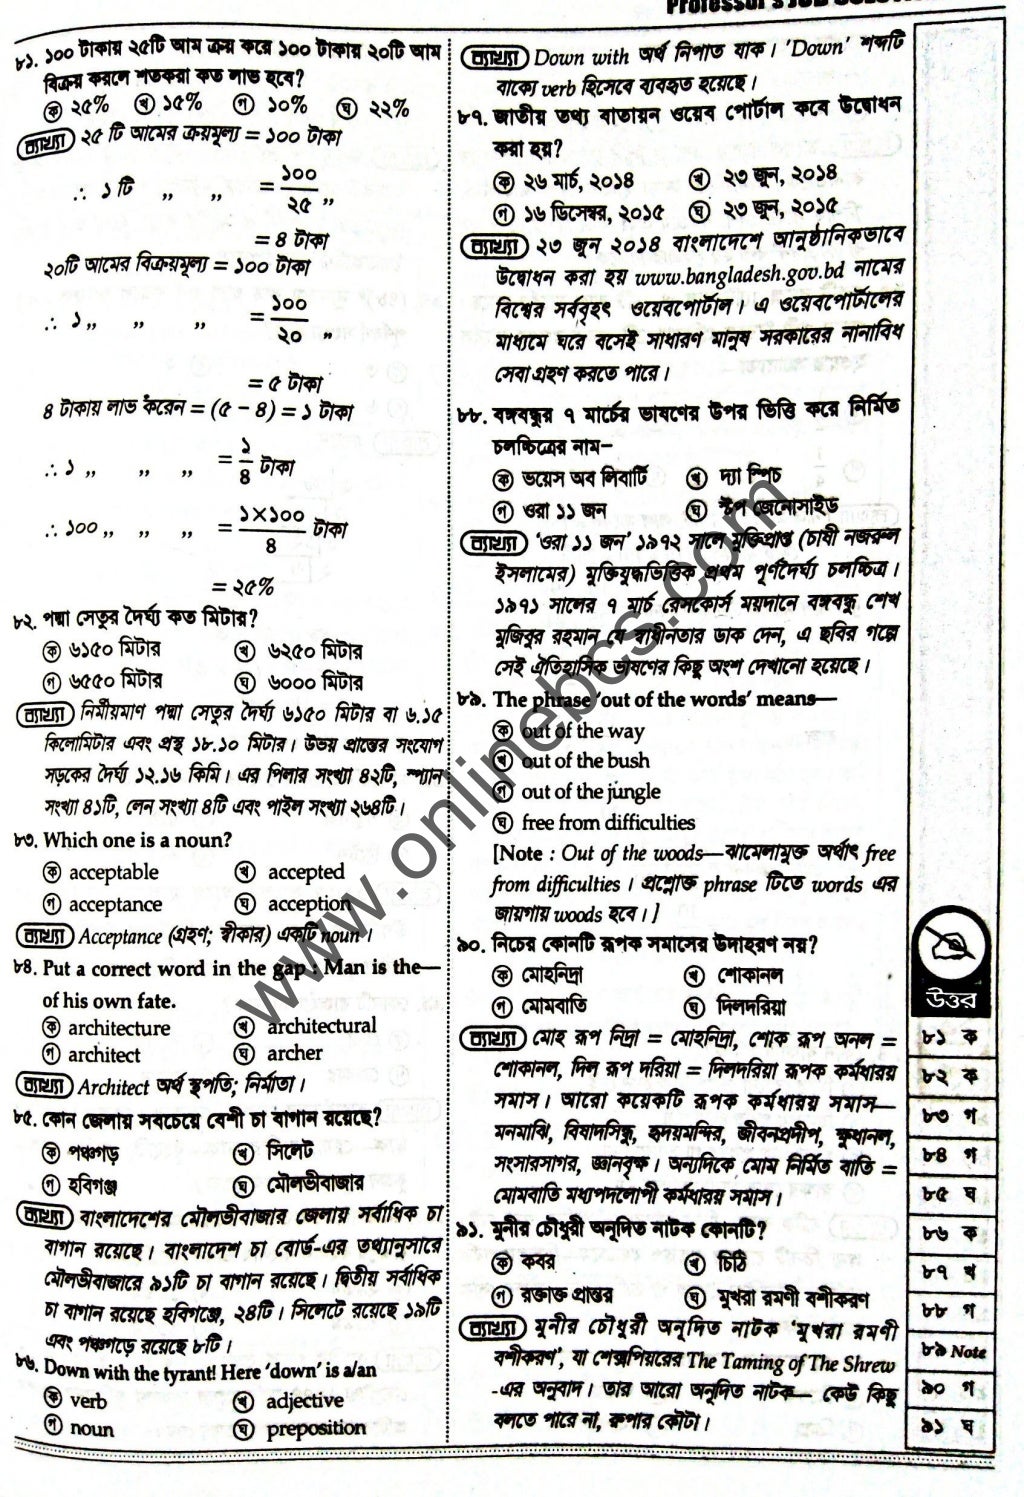 Professor's
৮১. ১০০ টাকায় ২৫টি আম ক্রয় করে ১০০ টাকায় ২০টি আম
বিক্রয় করলে শতকরা কত লাভ হবে?
ক ২৫% খ ১৫% গ ১০% ঘ ২২%
ব্যাখ্যা ২৫ টি আমের ক্রয়মূল্য = ১০০ টাকা
∴ ১ টি ,, ,, = ১০০/২৫ ,,
= ৪ টাকা
২০টি আমের বিক্রয়মূল্য = ১০০ টাকা
∴ ১ ,, ,, ,, = ১০০/২০ ,,
= ৫ টাকা
৪ টাকায় লাভ করেন = (৫ – ৪) = ১ টাকা
∴ ১ ,, ,, ,, = ১/৪ টাকা
∴ ১০০ ,, ,, ,, = ১×১০০/৪ টাকা
= ২৫%
৮২. পদ্মা সেতুর দৈর্ঘ্য কত মিটার?
ক ৬১৫০ মিটার খ ৬২৫০ মিটার
গ ৬৫৫০ মিটার ঘ ৬০০০ মিটার
ব্যাখ্যা নির্মীয়মাণ পদ্মা সেতুর দৈর্ঘ্য ৬১৫০ মিটার বা ৬.১৫
কিলোমিটার এবং প্রস্থ ১৮.১০ মিটার। উভয় প্রান্তের সংযোগ
সড়কের দৈর্ঘ্য ১২.১৬ কিমি। এর পিলার সংখ্যা ৪২টি, স্প্যান
সংখ্যা ৪১টি, লেন সংখ্যা ৪টি এবং পাইল সংখ্যা ২৬৪টি।
৮৩. Which one is a noun?
ক acceptable খ accepted
গ acceptance ঘ acception
ব্যাখ্যা Acceptance (গ্রহণ; স্বীকার) একটি noun।
৮৪. Put a correct word in the gap : Man is the—
of his own fate.
ক architecture খ architectural
গ architect ঘ archer
ব্যাখ্যা Architect অর্থ স্থপতি; নির্মাতা।
৮৫. কোন জেলায় সবচেয়ে বেশী চা বাগান রয়েছে?
ক পঞ্চগড় খ সিলেট
গ হবিগঞ্জ ঘ মৌলভীবাজার
ব্যাখ্যা বাংলাদেশের মৌলভীবাজার জেলায় সর্বাধিক চা
বাগান রয়েছে। বাংলাদেশ চা বোর্ড-এর তথ্যানুসারে
মৌলভীবাজারে ৯১টি চা বাগান রয়েছে। দ্বিতীয় সর্বাধিক
চা বাগান রয়েছে হবিগঞ্জে, ২৪টি। সিলেটে রয়েছে ১৯টি
এবং পঞ্চগড়ে রয়েছে ৮টি।
৮৬. Down with the tyrant! Here 'down' is a/an
ক verb খ adjective
গ noun ঘ preposition
ব্যাখ্যা Down with অর্থ নিপাত যাক। 'Down' শব্দটি
বাক্যে verb হিসেবে ব্যবহৃত হয়েছে।
৮৭. জাতীয় তথ্য বাতায়ন ওয়েব পোর্টাল কবে উদ্বোধন
করা হয়?
ক ২৬ মার্চ, ২০১৪ খ ২৩ জুন, ২০১৪
গ ১৬ ডিসেম্বর, ২০১৫ ঘ ২৩ জুন, ২০১৫
ব্যাখ্যা ২৩ জুন ২০১৪ বাংলাদেশে আনুষ্ঠানিকভাবে
উদ্বোধন করা হয় www.bangladesh.gov.bd নামের
বিশ্বের সর্ববৃহৎ ওয়েবপোর্টাল। এ ওয়েবপোর্টালের
মাধ্যমে ঘরে বসেই সাধারণ মানুষ সরকারের নানাবিধ
সেবা গ্রহণ করতে পারে।
৮৮. বঙ্গবন্ধুর ৭ মার্চের ভাষণের উপর ভিত্তি করে নির্মিত
চলচ্চিত্রের নাম–
ক ভয়েস অব লিবার্টি খ দ্যা স্পিচ
গ ওরা ১১ জন ঘ স্টপ জেনোসাইড
ব্যাখ্যা 'ওরা ১১ জন' ১৯৭২ সালে মুক্তিপ্রাপ্ত (চাষী নজরুল
ইসলামের) মুক্তিযুদ্ধভিত্তিক প্রথম পূর্ণদৈর্ঘ্য চলচ্চিত্র।
১৯৭১ সালের ৭ মার্চ রেসকোর্স ময়দানে বঙ্গবন্ধু শেখ
মুজিবুর রহমান যে স্বাধীনতার ডাক দেন, এ ছবির গল্পে
সেই ঐতিহাসিক ভাষণের কিছু অংশ দেখানো হয়েছে।
৮৯. The phrase 'out of the words' means—
ক out of the way
খ out of the bush
গ out of the jungle
ঘ free from difficulties
[Note : Out of the woods—ঝামেলামুক্ত অর্থাৎ free
from difficulties। প্রশ্নোক্ত phrase টিতে words এর
জায়গায় woods হবে।]
৯০. নিচের কোনটি রূপক সমাসের উদাহরণ নয়?
ক মোহনিদ্রা খ শোকানল
গ মোমবাতি ঘ দিলদরিয়া
ব্যাখ্যা মোহ রূপ নিদ্রা = মোহনিদ্রা, শোক রূপ অনল =
শোকানল, দিল রূপ দরিয়া = দিলদরিয়া রূপক কর্মধারয়
সমাস। আরো কয়েকটি রূপক কর্মধারয় সমাস—
মনমাঝি, বিষাদসিন্ধু, হৃদয়মন্দির, জীবনপ্রদীপ, ক্ষুধানল,
সংসারসাগর, জ্ঞানবৃক্ষ। অন্যদিকে মোম নির্মিত বাতি =
মোমবাতি মধ্যপদলোপী কর্মধারয় সমাস।
৯১. মুনীর চৌধুরী অনূদিত নাটক কোনটি?
ক কবর খ চিঠি
গ রক্তাক্ত প্রান্তর ঘ মুখরা রমণী বশীকরণ
ব্যাখ্যা মুনীর চৌধুরী অনূদিত নাটক 'মুখরা রমণী
বশীকরণ', যা শেক্সপিয়রের The Taming of The Shrew
-এর অনুবাদ। তার আরো অনূদিত নাটক— কেউ কিছু
বলতে পারে না, রূপার কৌটা।
উত্তর
৮১ ক
৮২ ক
৮৩ গ
৮৪ গ
৮৫ ঘ
৮৬ ক
৮৭ খ
৮৮ গ
৮৯ Note
৯০ গ
৯১ ঘ
www.onlinebcs.com